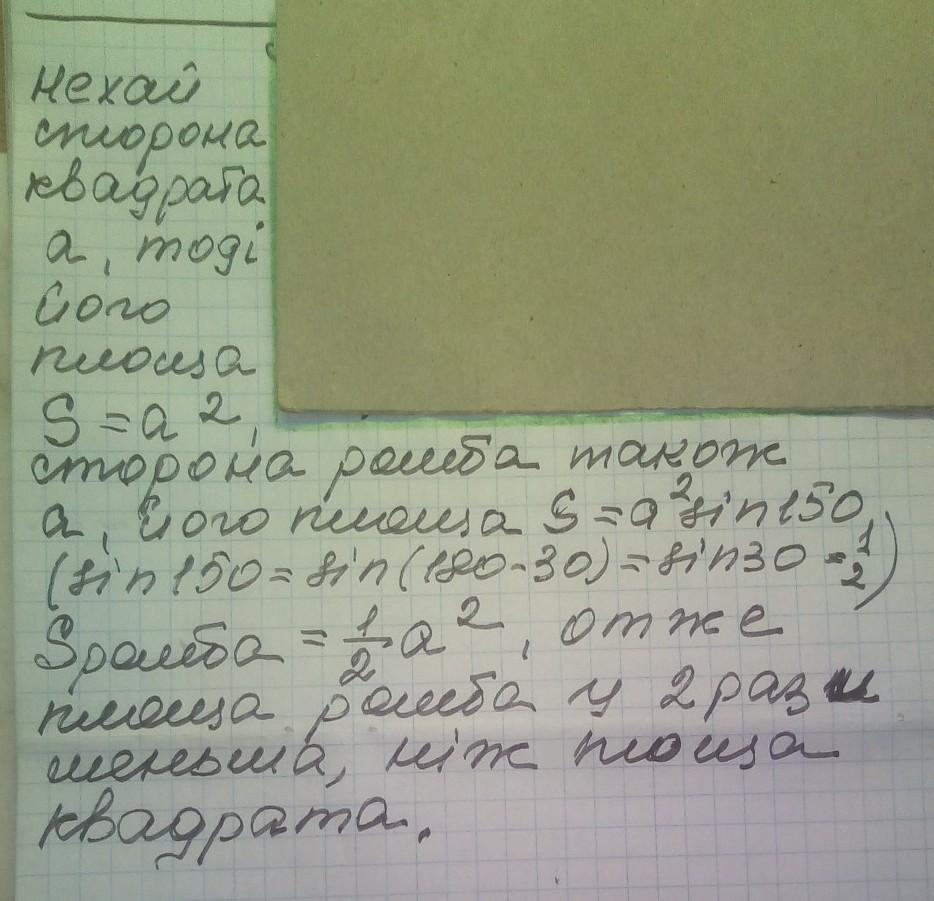 Нехай
сторона
квадрата
a, тоді
його
площа
S = a²,
сторона ромба також
a, його площа S = a² sin150,
(sin150 = sin(180-30) = sin30 = 1/2)
Sромба = 1/2 a², отже
площа ромба у 2 рази
меньша, ніж площа
квадрата.